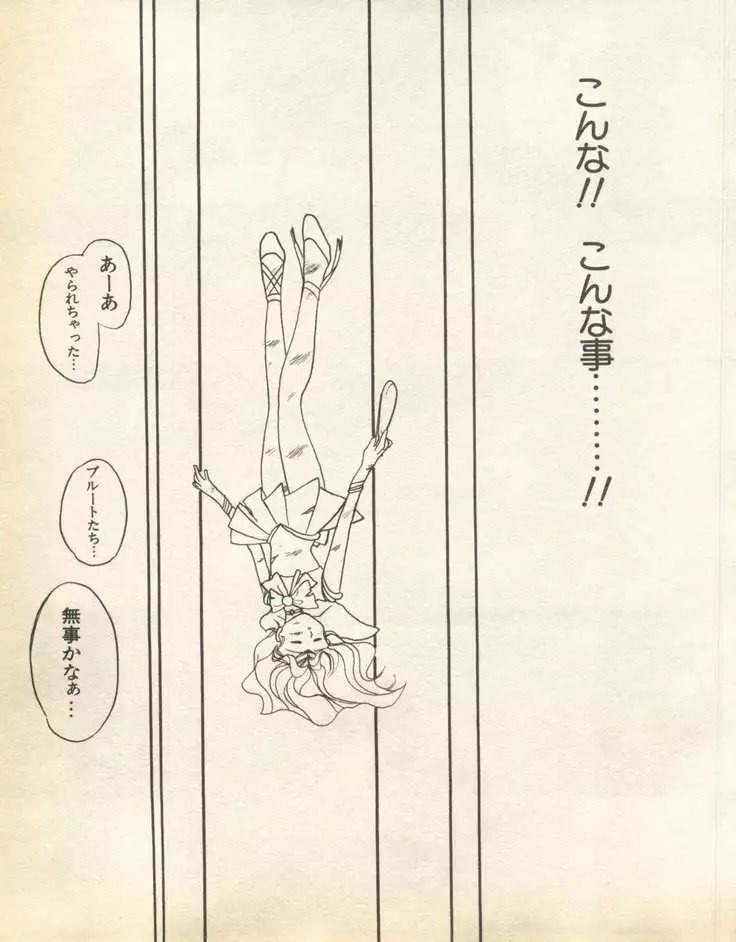 こんな!!
こんな事…………!!
あーあ
やられちゃった…
プルートたち…
無事かなぁ…